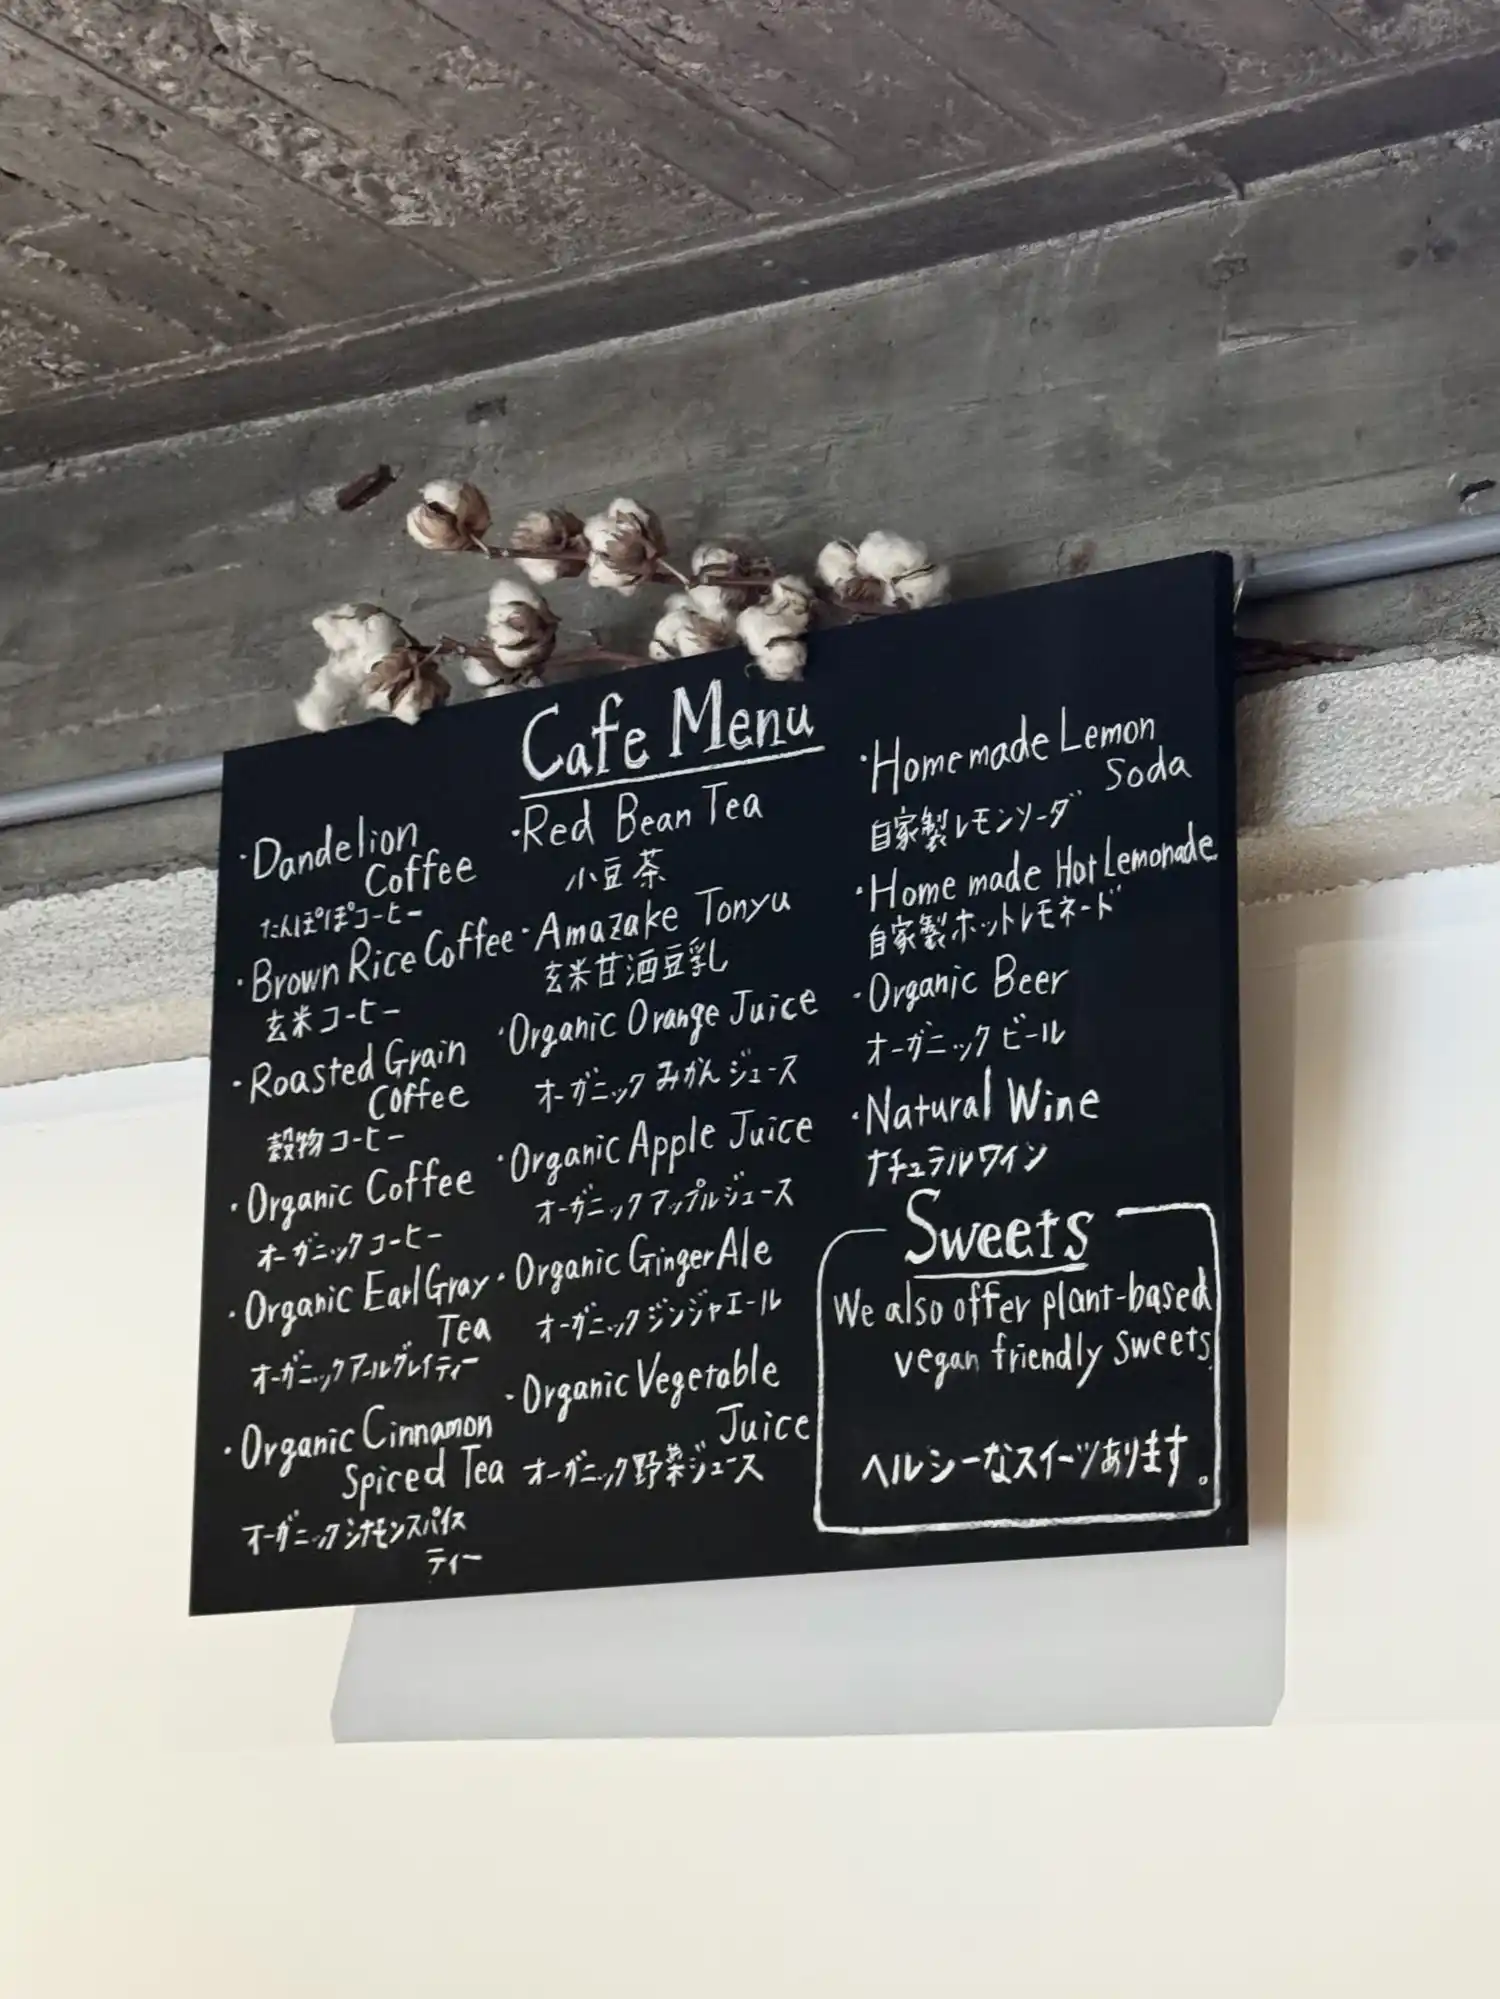 Cafe Menu
・Dandelion
Coffee
たんぽぽコーヒー
・Brown Rice Coffee
玄米コーヒー
・Roasted Grain
Coffee
穀物コーヒー
・Organic Coffee
オーガニックコーヒー
・Organic Earl Gray
Tea
オーガニックアールグレイティー
・Organic Cinnamon
Spiced Tea
オーガニックシナモンスパイス
ティー
・Red Bean Tea
小豆茶
・Amazake Tonyu
玄米甘酒豆乳
・Organic Orange Juice
オーガニックみかんジュース
・Organic Apple Juice
オーガニックアップルジュース
・Organic Ginger Ale
オーガニックジンジャエール
・Organic Vegetable
Juice
オーガニック野菜ジュース
・Home made Lemon
Soda
自家製レモンソーダ
・Home made Hot Lemonade
自家製ホットレモネード
・Organic Beer
オーガニックビール
・Natural Wine
ナチュラルワイン
Sweets
We also offer plant-based
vegan friendly sweets.
ヘルシーなスイーツあります。